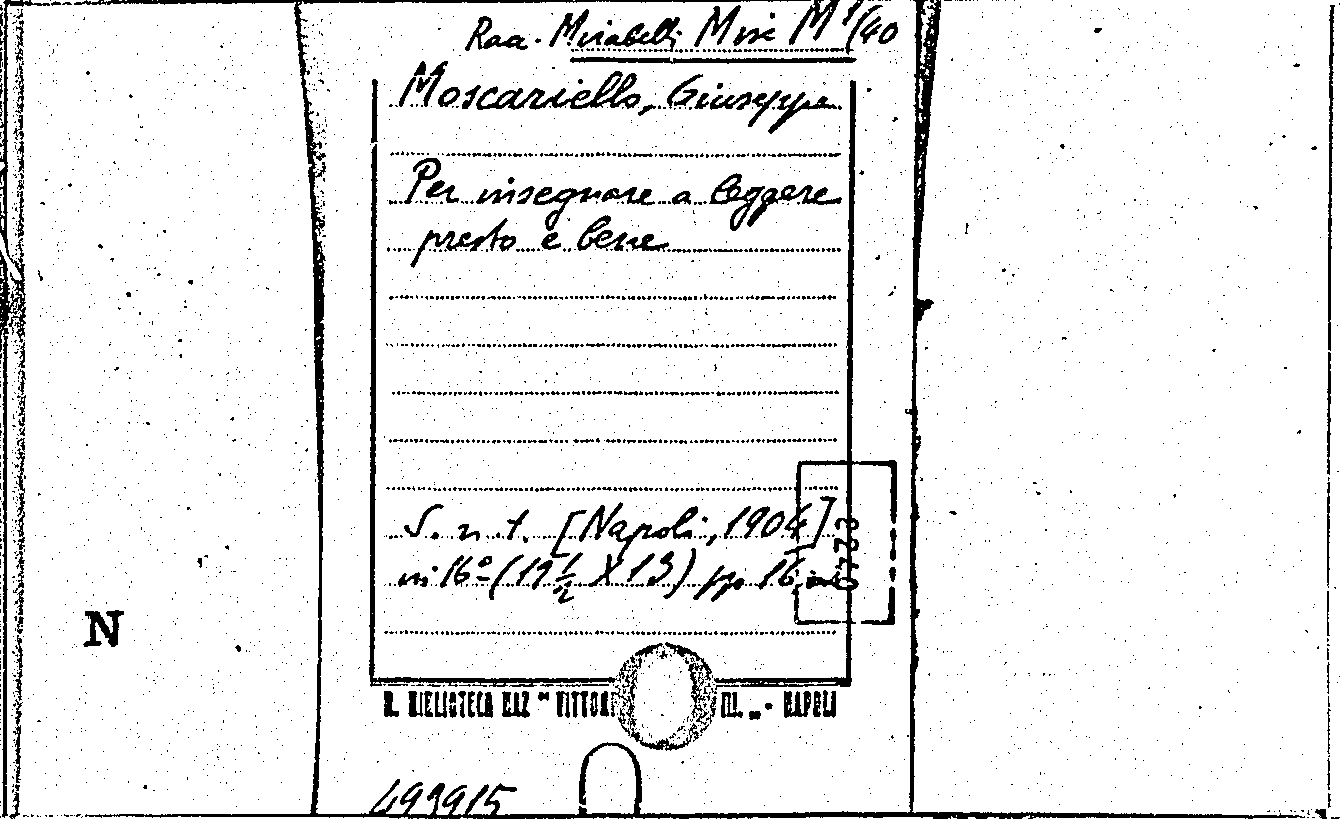 Racc. Mirabelli Misc M 1/40
Moscariello, Giuseppe
Per insegnare a leggere
presto e bene
S. n. t. [Napoli, 1904]
in 16º (19 1/2 X 13) pp 16
N
R. BIBLIOTECA NAZ VITTOR III. NAPOLI
499915